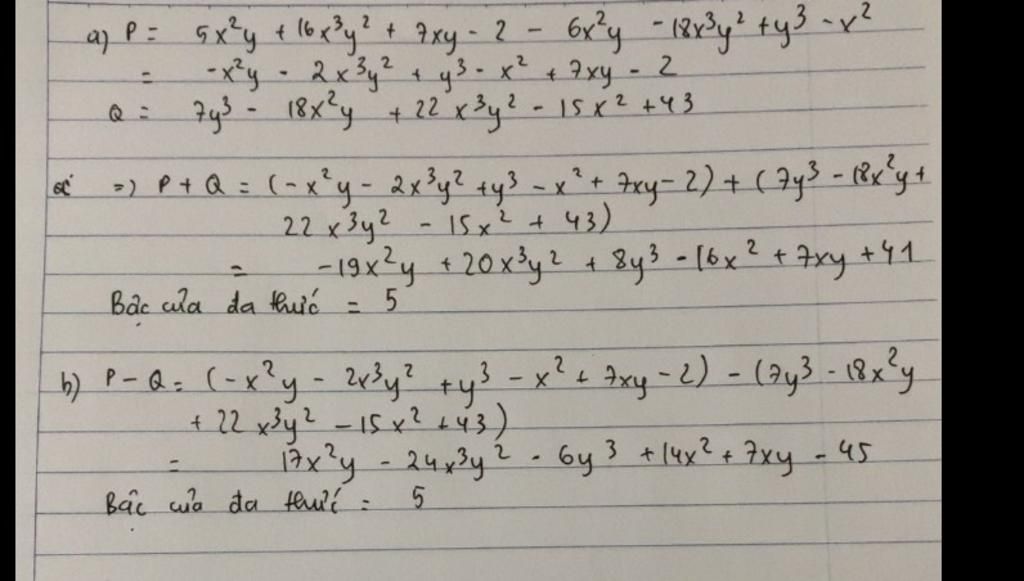 a) P = 5x²y + 16x³y² + 7xy - 2 - 6x²y - 18x³y² + y³ - x²
= -x²y - 2x³y² + y³ - x² + 7xy - 2
Q = 7y³ - 18x²y + 22x³y² - 15x² + 43
=> P + Q = (-x²y - 2x³y² + y³ - x² + 7xy - 2) + (7y³ - 18x²y +
22x³y² - 15x² + 43)
= -19x²y + 20x³y² + 8y³ - 16x² + 7xy + 41
Bậc của đa thức = 5
b) P - Q = (-x²y - 2x³y² + y³ - x² + 7xy - 2) - (7y³ - 18x²y
+ 22x³y² - 15x² + 43)
= 17x²y - 24x³y² - 6y³ + 14x² + 7xy - 45
Bậc của đa thức = 5